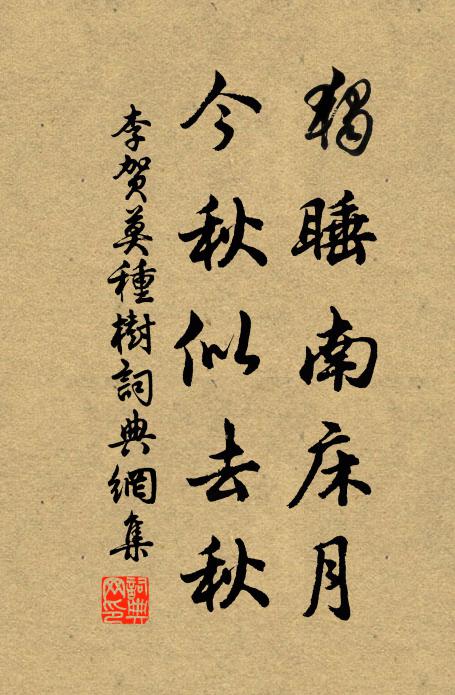 獨睡南床月
今秋似去秋
李賀莫種樹詞典網集
詞典網印